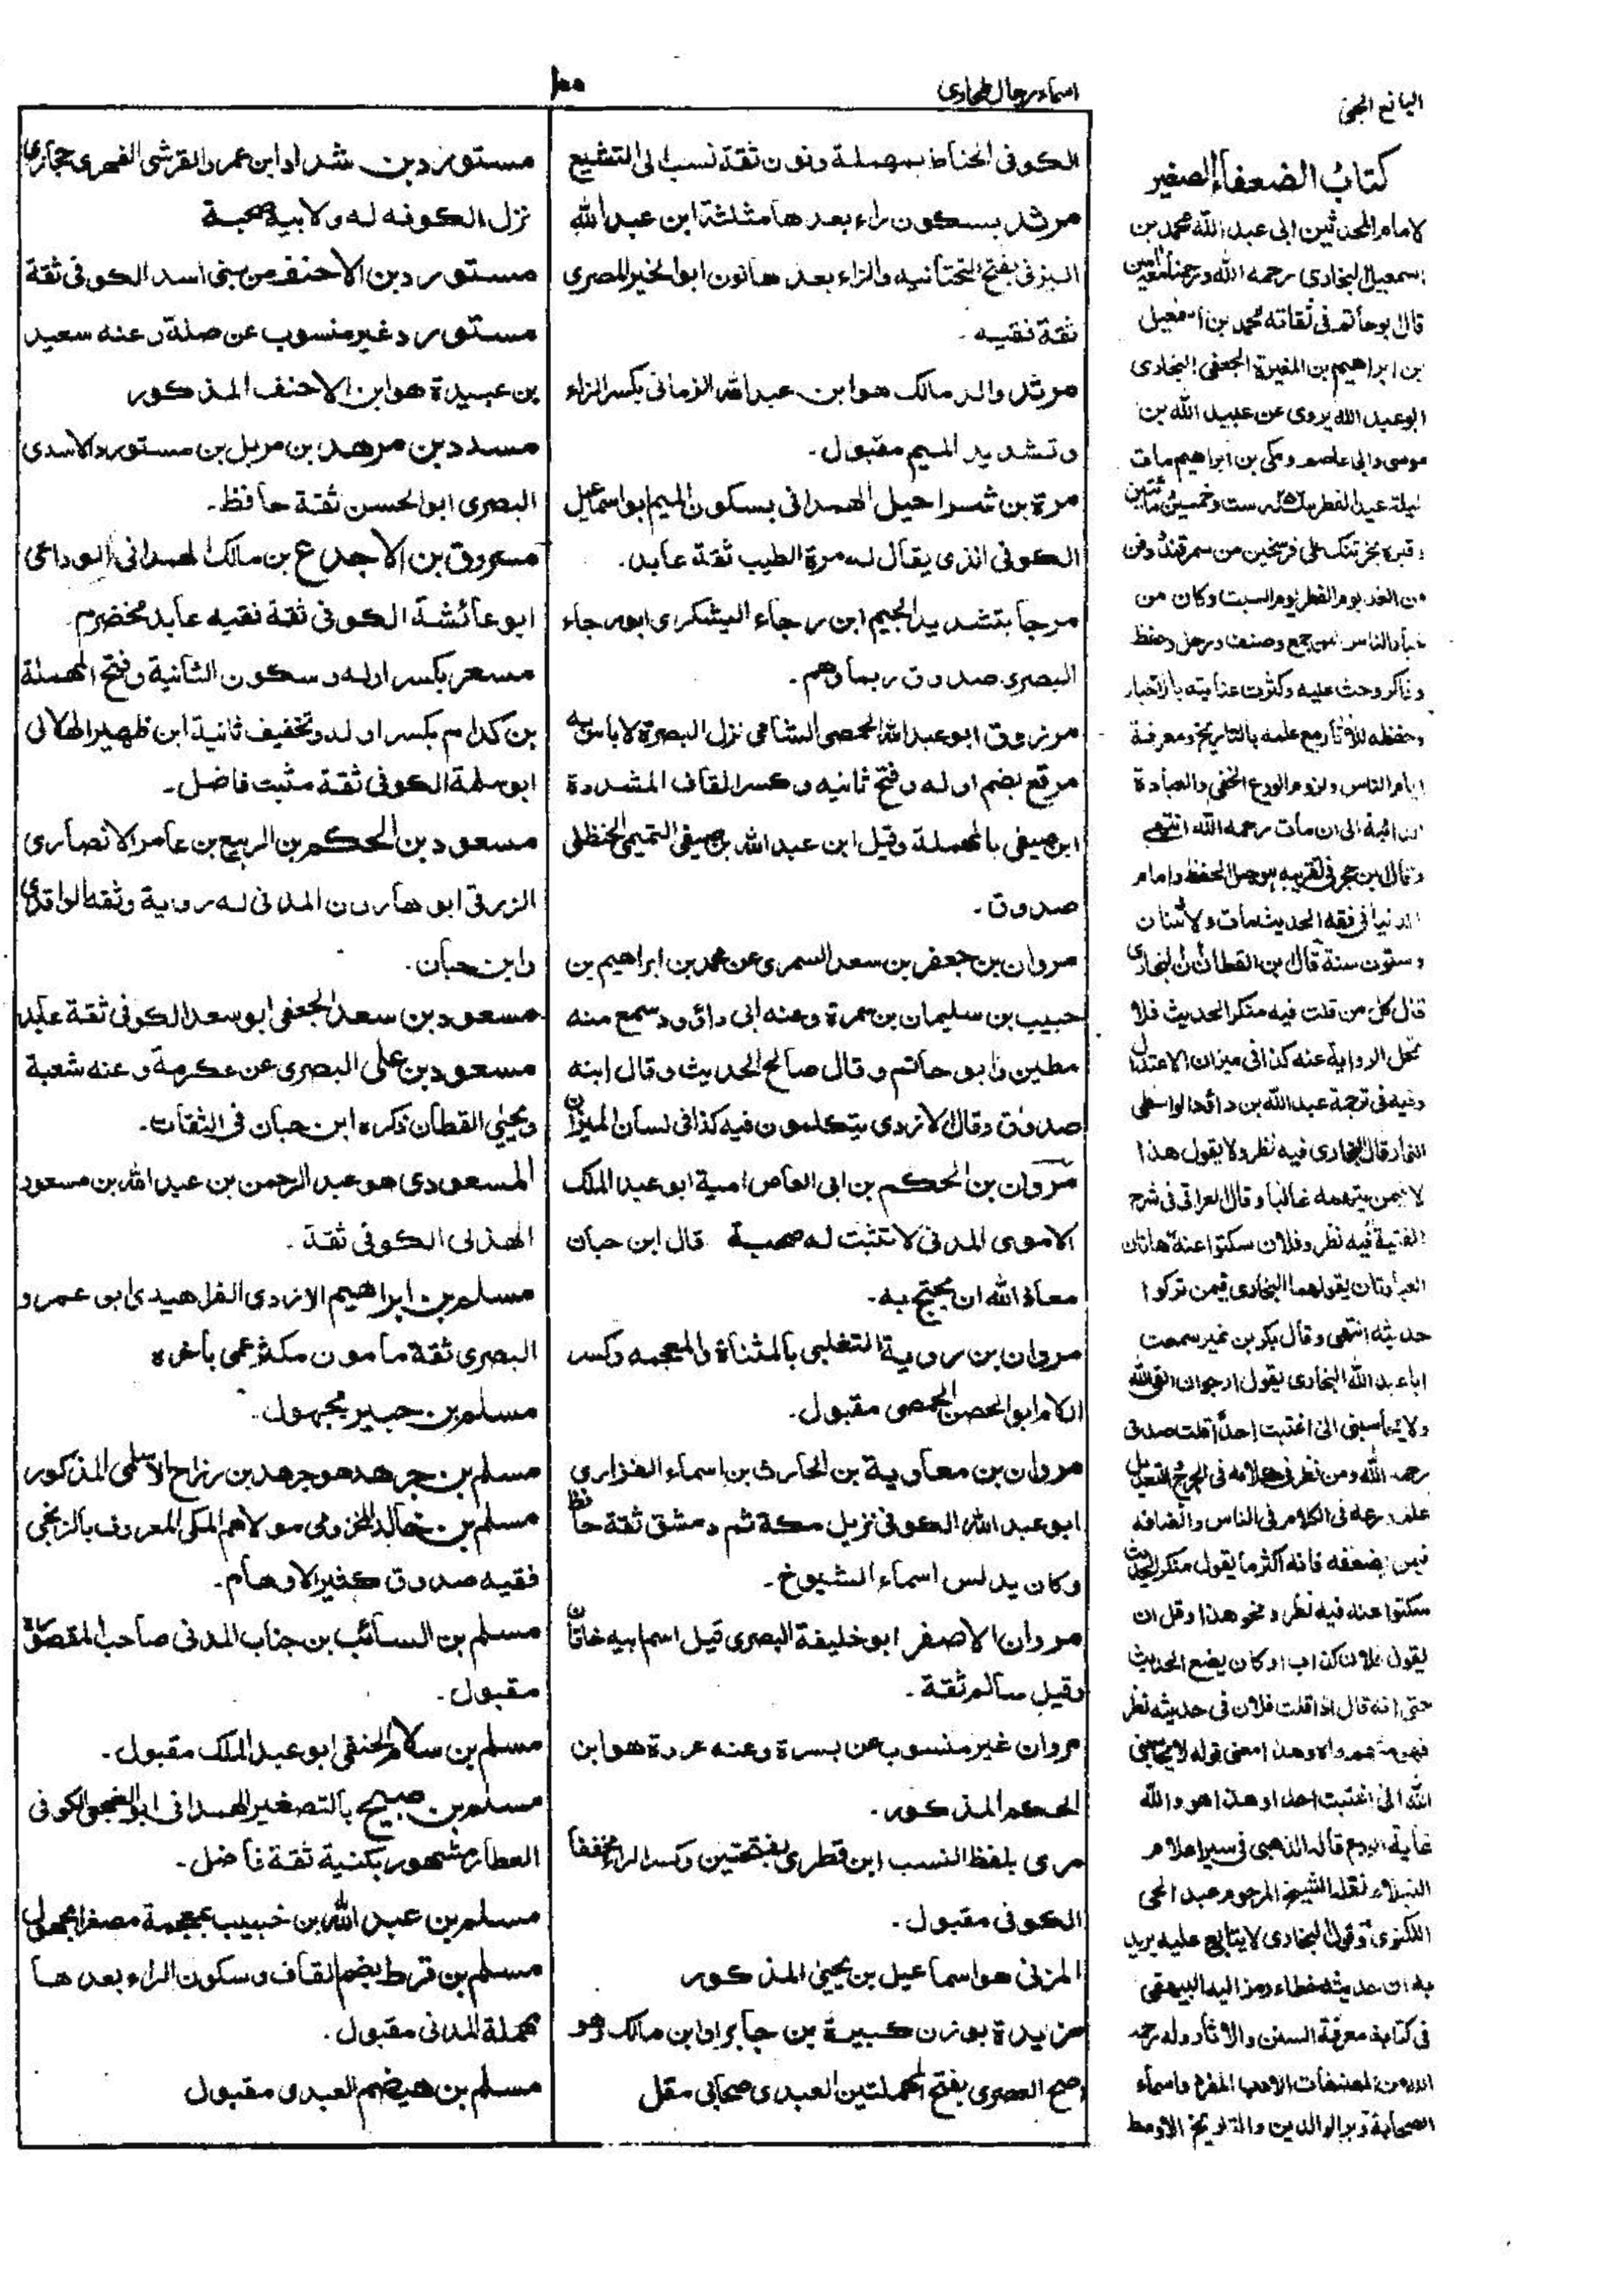 اسماء رجال طحاوى
١٠٠
الكوفى الحناط بمهملة ونون ثقة نسب الى التشيع
مرثد بسكون راء بعدها مثلثة ابن عبد الله
اليزنى بفتح التحتانيه والزاء بعدها نون ابو الخير المصرى
ثقة فقيه.
مرثد والد مالك هو ابن عبد الله الزمانى بكسر الزاء
وتشديد الميم مقبول.
مرة بن شراحيل الهمدانى بسكون الميم ابو اسماعيل
الكوفى الذى يقال له مرة الطيب ثقة عابد.
مرجا بتشديد الجيم ابن رجاء اليشكرى ابو رجاء
البصرى صدوق ربما وهم.
مرزوق ابو عبد الله الحمصى الشامى نزل البصرة لا باس به
مرقع بضم اوله وفتح ثانيه وكسر القاف المشددة
ابن صيفى بالمهملة وقيل ابن عبد الله بن صيفى التميمى الحنظلى
صدوق.
مروان بن جعفر بن سعد السمرى عن محمد بن ابراهيم بن
حبيب بن سليمان بن سمرة وعنه ابى داؤد وسمع منه
مطين وابو حاتم وقال صالح الحديث وقال ابنه
صدوق وقال الازدى يتكلمون فيه كذا فى لسان الميزان
مروان بن الحكم بن ابى العاص امية ابو عبد الملك
الاموى المدنى لا تثبت له صحبة قال ابن حبان
معاذ الله ان يحتج به.
مروان بن روبة التغلبى بالمثناة والمعجمه وكسر
اللام ابو الحصن الحمصى مقبول.
مروان بن معاوية بن الحارث بن اسماء الفزارى
ابو عبد الله الكوفى نزيل مكة ثم دمشق ثقة حافظ
وكان يدلس اسماء الشيوخ.
مروان الاصفر ابو خليفة البصرى قيل اسم ابيه خاقان
وقيل سالم ثقة.
مروان غير منسوب عن بسرة وعنه عروة هو ابن
الحكم المذكور.
مرى بلفظ النسب ابن قطرى بفتحتين وكسر الراء مخففا
الكوفى مقبول.
المزنى هو اسماعيل بن يحيى المذكور
مزيدة بوزن كبيرة بن جابر او ابن مالك وهو
اصح العصرى بفتح المهملتين العبدى صحابى مقل
مستورد بن شداد ابن عمرو القرشى الفهرى حجازى
نزل الكوفه له ولابيه صحبة
مستورد بن الاحنف من بنى اسد الكوفى ثقة
مستورد غير منسوب عن صلة وعنه سعيد
بن عبيدة هو ابن الاحنف المذكور
مسدد بن مرهد بن مربل بن مستورد الاسدى
البصرى ابو الحسن ثقة حافظ.
مسروق بن الاجدع بن مالك الهمدانى الوداعى
ابو عائشة الكوفى ثقة فقيه عابد مخضرم.
مسعر بكسر اوله وسكون الثانية وفتح المهملة
بن كدام بكسر اوله وتخفيف ثانية ابن ظهير الهلالى
ابو سلمة الكوفى ثقة مثبت فاضل.
مسعود بن الحكم بن الربيع بن عامر الانصارى
الزرقى ابو هارون المدنى له روية وثقه الواقدى
وابن حبان.
مسعود بن سعد الجعفى ابو سعد الكوفى ثقة عابد
مسعود بن على البصرى عن عكرمة وعنه شعبة
ويحيى القطان ذكره ابن حبان فى الثقات.
المسعودى هو عبد الرحمن بن عبد الله بن مسعود
الهذلى الكوفى ثقة.
مسلم بن ابراهيم الازدى الفراهيدى ابو عمرو
البصرى ثقة مامون مكثر عمى باخره
مسلم بن جبير مجهول.
مسلم بن جرهد هو جرهد بن رزاح الاسلمى المذكور
مسلم بن خالد المخزومى مولاهم المكى المعروف بالزنجى
فقيه صدوق كثير الاوهام.
مسلم بن السائب بن جناب المدنى صاحب المقصورة
مقبول.
مسلم بن سلام الحنفى ابو عبد الملك مقبول.
مسلم بن صبيح بالتصغير الهمدانى ابو الضحى الكوفى
العطار مشهور بكنية ثقة فاضل.
مسلم بن عبد الله بن خبيب بمعجمة مصغرا مجهول
مسلم بن قرط بضم القاف وسكون الراء بعدها
مهملة المدنى مقبول.
مسلم بن هيضم العبدى مقبول
اليانع الجنى
كتاب الضعفاء الصغير
لامام المحدثين ابى عبد الله محمد بن
اسمعيل البخارى رحمه الله ورحمنا معه امين
قال ابو حاتم فى ثقاته محمد بن اسمعيل
بن ابراهيم بن المغيرة الجعفى البخارى
ابو عبد الله يروى عن عبيد الله بن
موسى وابى عاصم ومكى بن ابراهيم مات
ليلة عيد الفطر سنة ست وخمسين مأتين
وقبره بخرتنك على فرسخين من سمرقند ودفن
من الغد يوم الفطر يوم السبت وكان من
خيار الناس ممن جمع وصنف ورحل وحفظ
وذاكر وحث عليه وكثرت عنايته بالاخبار
وحفظه للاثار مع علمه بالتاريخ ومعرفة
ايام الناس ولزوم الورع الخفى والعبادة
الدائبة الى ان مات رحمه الله انتهى
وقال ابن حجر فى تقريبه هو جبل الحفظ وامام
الدنيا فى فقه الحديث مات وله اثنان
وستون سنة قال ابن القطان ان البخارى
قال كل من قلت فيه منكر الحديث فلا
تحل الرواية عنه كذا فى ميزان الاعتدال
وفيه فى ترجمة عبد الله بن داؤد الواسطى
التمار قال البخارى فيه نظر ولا يقول هذا
الا فيمن يتهمه غالبا وقال العراقى فى شرح
الفتية فيه نظر وفلان سكتوا عنه هاتان
العبارتان يقولهما البخارى فيمن تركوا
حديثه انتهى وقال بكر بن منير سمعت
ابا عبد الله البخارى يقول ارجو ان القى الله
ولا يحاسبنى انى اغتبت احدا قلت صدق
رحمه الله ومن نظر فى كلامه فى الجرح والتعديل
علم ورعه فى الكلام فى الناس وانصافه
فيمن يضعفه فانه اكثر ما يقول منكر الحديث
سكتوا عنه فيه نظر ونحو هذا وقل ان
يقول فلان كذاب او كان يضع الحديث
حتى انه قال اذا قلت فلان فى حديثه نظر
فهو متهم واه وهذا معنى قوله لا يحاسبنى
الله انى اغتبت احدا وهذا هو والله
غاية الورع قاله الذهبى فى سير اعلام
النبلاء نقله الشيخ المرحوم عبد الحى
اللكنوى وقول البخارى لا يتابع عليه يريد
به ان حديثه خطاء ومز اليه البيهقى
فى كتابه معرفة السنن والاثار وله رحمه
الله من المصنفات الادب المفرد واسماء
الصحابة وبر الوالدين والتاريخ الاوسط